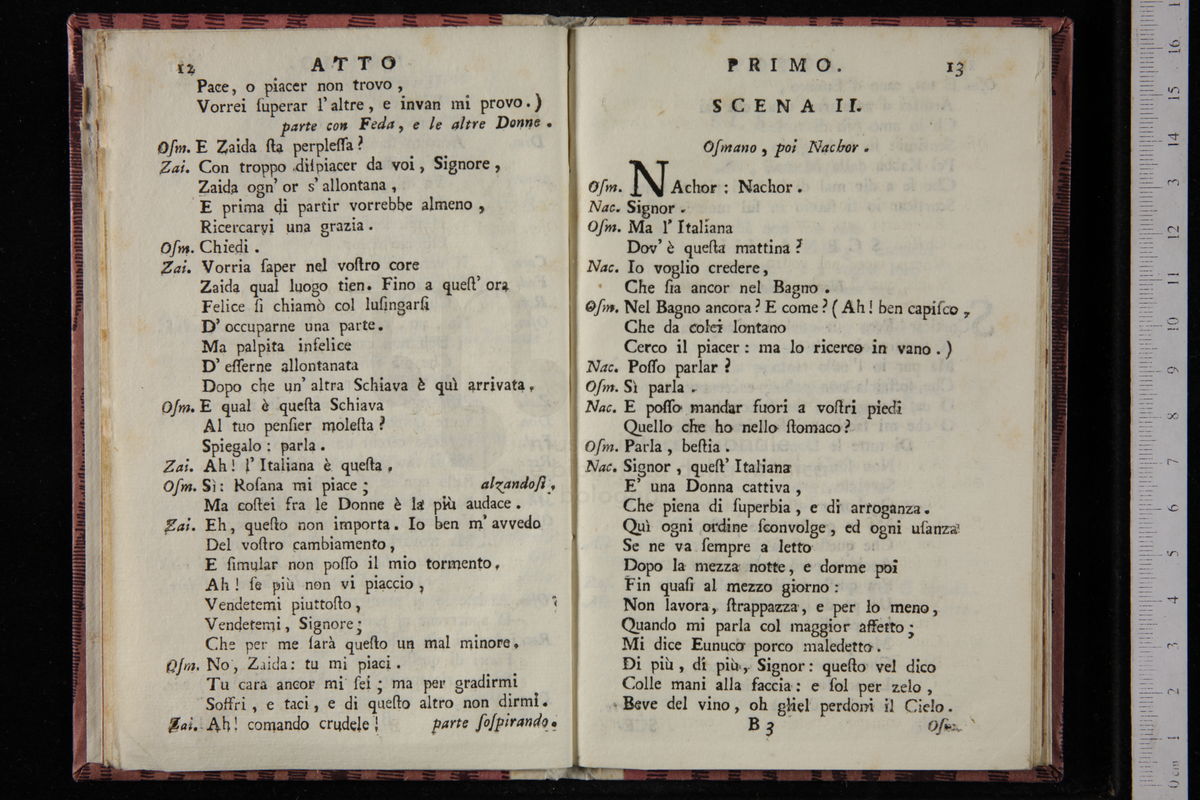 12 ATTO
Pace, o piacer non trovo,
Vorrei ſuperar l'altre, e invan mi provo.)
parte con Feda, e le altre Donne.
Oſm. E Zaida ſta perpleſſa?
Zai. Con troppo diſpiacer da voi, Signore,
Zaida ogn' or s' allontana,
E prima di partir vorrebbe almeno,
Ricercarvi una grazia.
Oſm. Chiedi.
Zai. Vorria ſaper nel voſtro core
Zaida qual luogo tien. Fino a queſt' ora
Felice ſi chiamò col luſingarſi
D' occuparne una parte.
Ma palpita infelice
D' eſſerne allontanata
Dopo che un' altra Schiava è quì arrivata.
Oſm. E qual è queſta Schiava
Al tuo penſier moleſta?
Spiegalo: parla.
Zai. Ah! l' Italiana è queſta.
Oſm. Sì: Roſana mi piace; alzandoſi.
Ma coſtei fra le Donne è la più audace.
Zai. Eh, queſto non importa. Io ben m' avvedo
Del voſtro cambiamento,
E ſimular non poſſo il mio tormento.
Ah! ſe più non vi piaccio,
Vendetemi piuttoſto,
Vendetemi, Signore;
Che per me ſarà queſto un mal minore.
Oſm. No, Zaida: tu mi piaci.
Tu cara ancor mi ſei; ma per gradirmi
Soffri, e taci, e di queſto altro non dirmi.
Zai. Ah! comando crudele! parte ſoſpirando.
PRIMO. 13
SCENA II.
Oſmano, poi Nachor.
Oſm. NAchor: Nachor.
Nac. Signor.
Oſm. Ma l' Italiana
Dov' è queſta mattina?
Nac. Io voglio credere,
Che ſia ancor nel Bagno.
Oſm. Nel Bagno ancora? E come? (Ah! ben capiſco,
Che da colei lontano
Cerco il piacer: ma lo ricerco in vano.)
Nac. Poſſo parlar?
Oſm. Sì parla.
Nac. E poſſo mandar fuori a voſtri piedi
Quello che ho nello ſtomaco?
Oſm. Parla, beſtia.
Nac. Signor, queſt' Italiana
E' una Donna cattiva,
Che piena di ſuperbia, e di arroganza.
Quì ogni ordine ſconvolge, ed ogni uſanza
Se ne va ſempre a letto
Dopo la mezza notte, e dorme poi
Fin quaſi al mezzo giorno:
Non lavora, ſtrappazza, e per lo meno,
Quando mi parla col maggior affetto;
Mi dice Eunuco porco maledetto.
Di più, di più, Signor: queſto vel dico
Colle mani alla faccia: e ſol per zelo,
Beve del vino, oh gliel perdoni il Cielo.
B 3 Oſm.